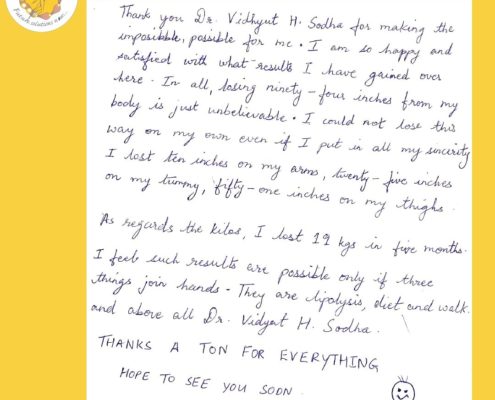 Thank you Dr. Vidhyut H. Sodha for making the
imposibble, possible for me. I am so happy and
satisfied with what results I have gained over
here. In all, losing ninety-four inches from my
body is just unbelievable. I could not lose this
way on my own even if I put in all my sincerity
I lost ten inches on my arms, twenty-five inches
on my tummy, fifty-one inches on my thighs.
As regards the kilos, I lost 19 kgs in five months.
I feel such results are possible only if three
things join hands - They are lipolysis, diet and walk.
and above all Dr. Vidyut H. Sodha.
THANKS A TON FOR EVERYTHING
HOPE TO SEE YOU SOON.